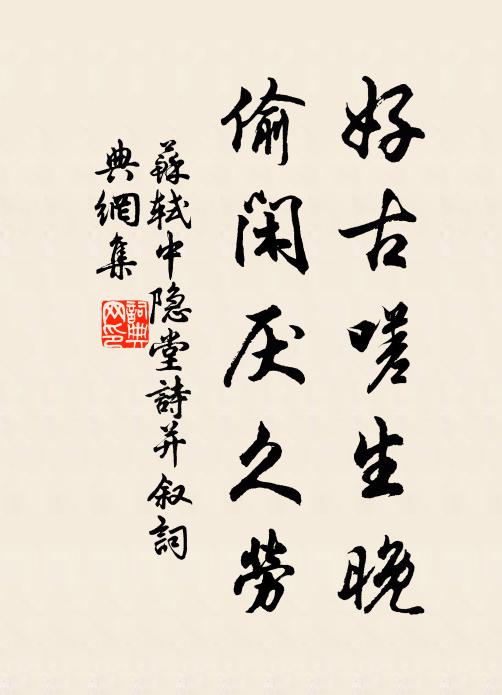 好古嗟生晚
偷闲厌久勞
蘇軾中隐堂詩并叙詞
典網集
詞典
网印